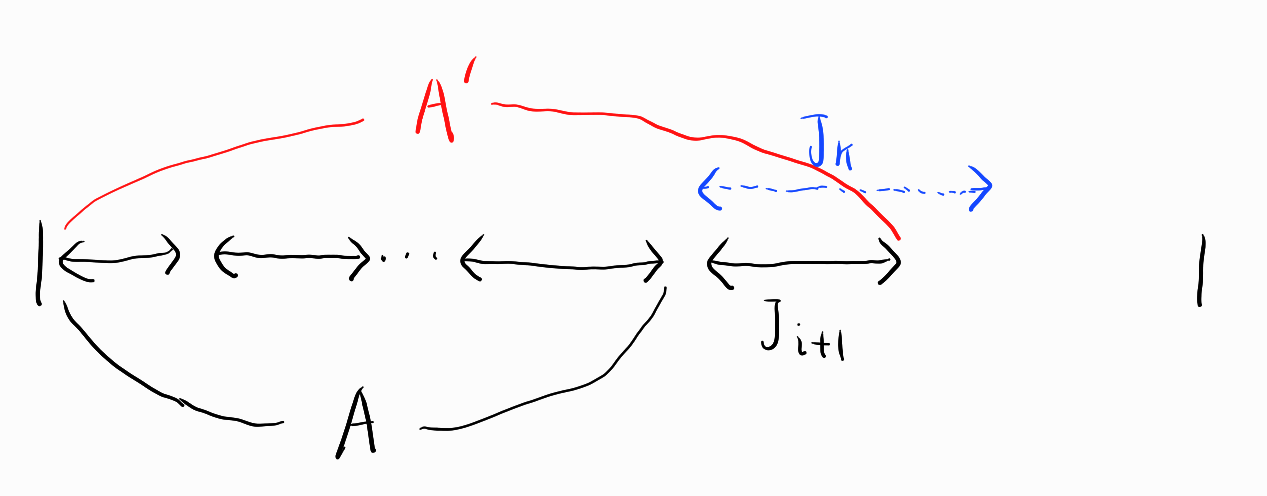 A'
J_k
...
J_{i+1}
A